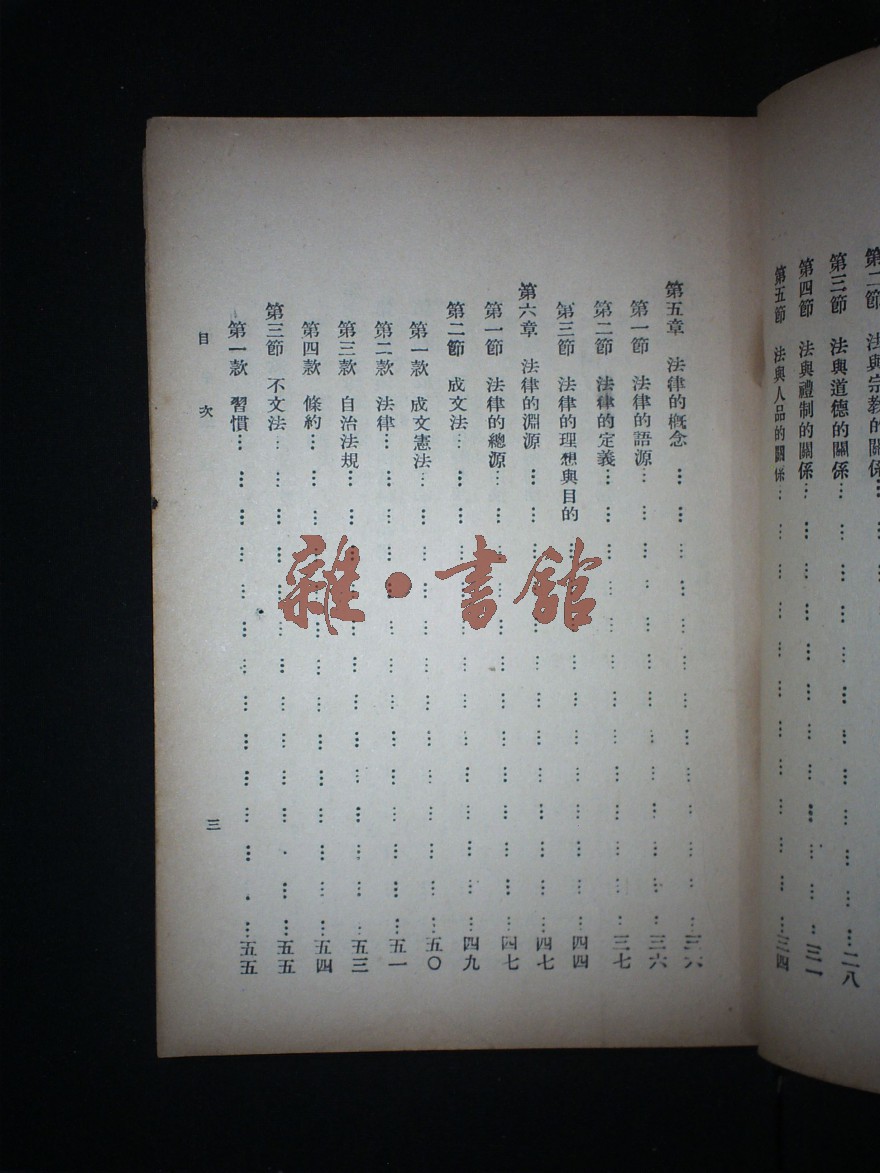 第二節 法與宗教的關係
第三節 法與道德的關係 二八
第四節 法與禮制的關係 三一
第五節 法與人品的關係 三四
第五章 法律的槪念 三六
第一節 法律的語源 三六
第二節 法律的定義 三七
第三節 法律的理想與目的 四四
第六章 法律的淵源 四七
第一節 法律的總源 四七
第二節 成文法 四九
第一款 成文憲法 五〇
第二款 法律 五一
第三款 自治法規 五三
第四款 條約 五四
第三節 不文法 五五
第一款 習慣 五五
目次 三
雜·書館